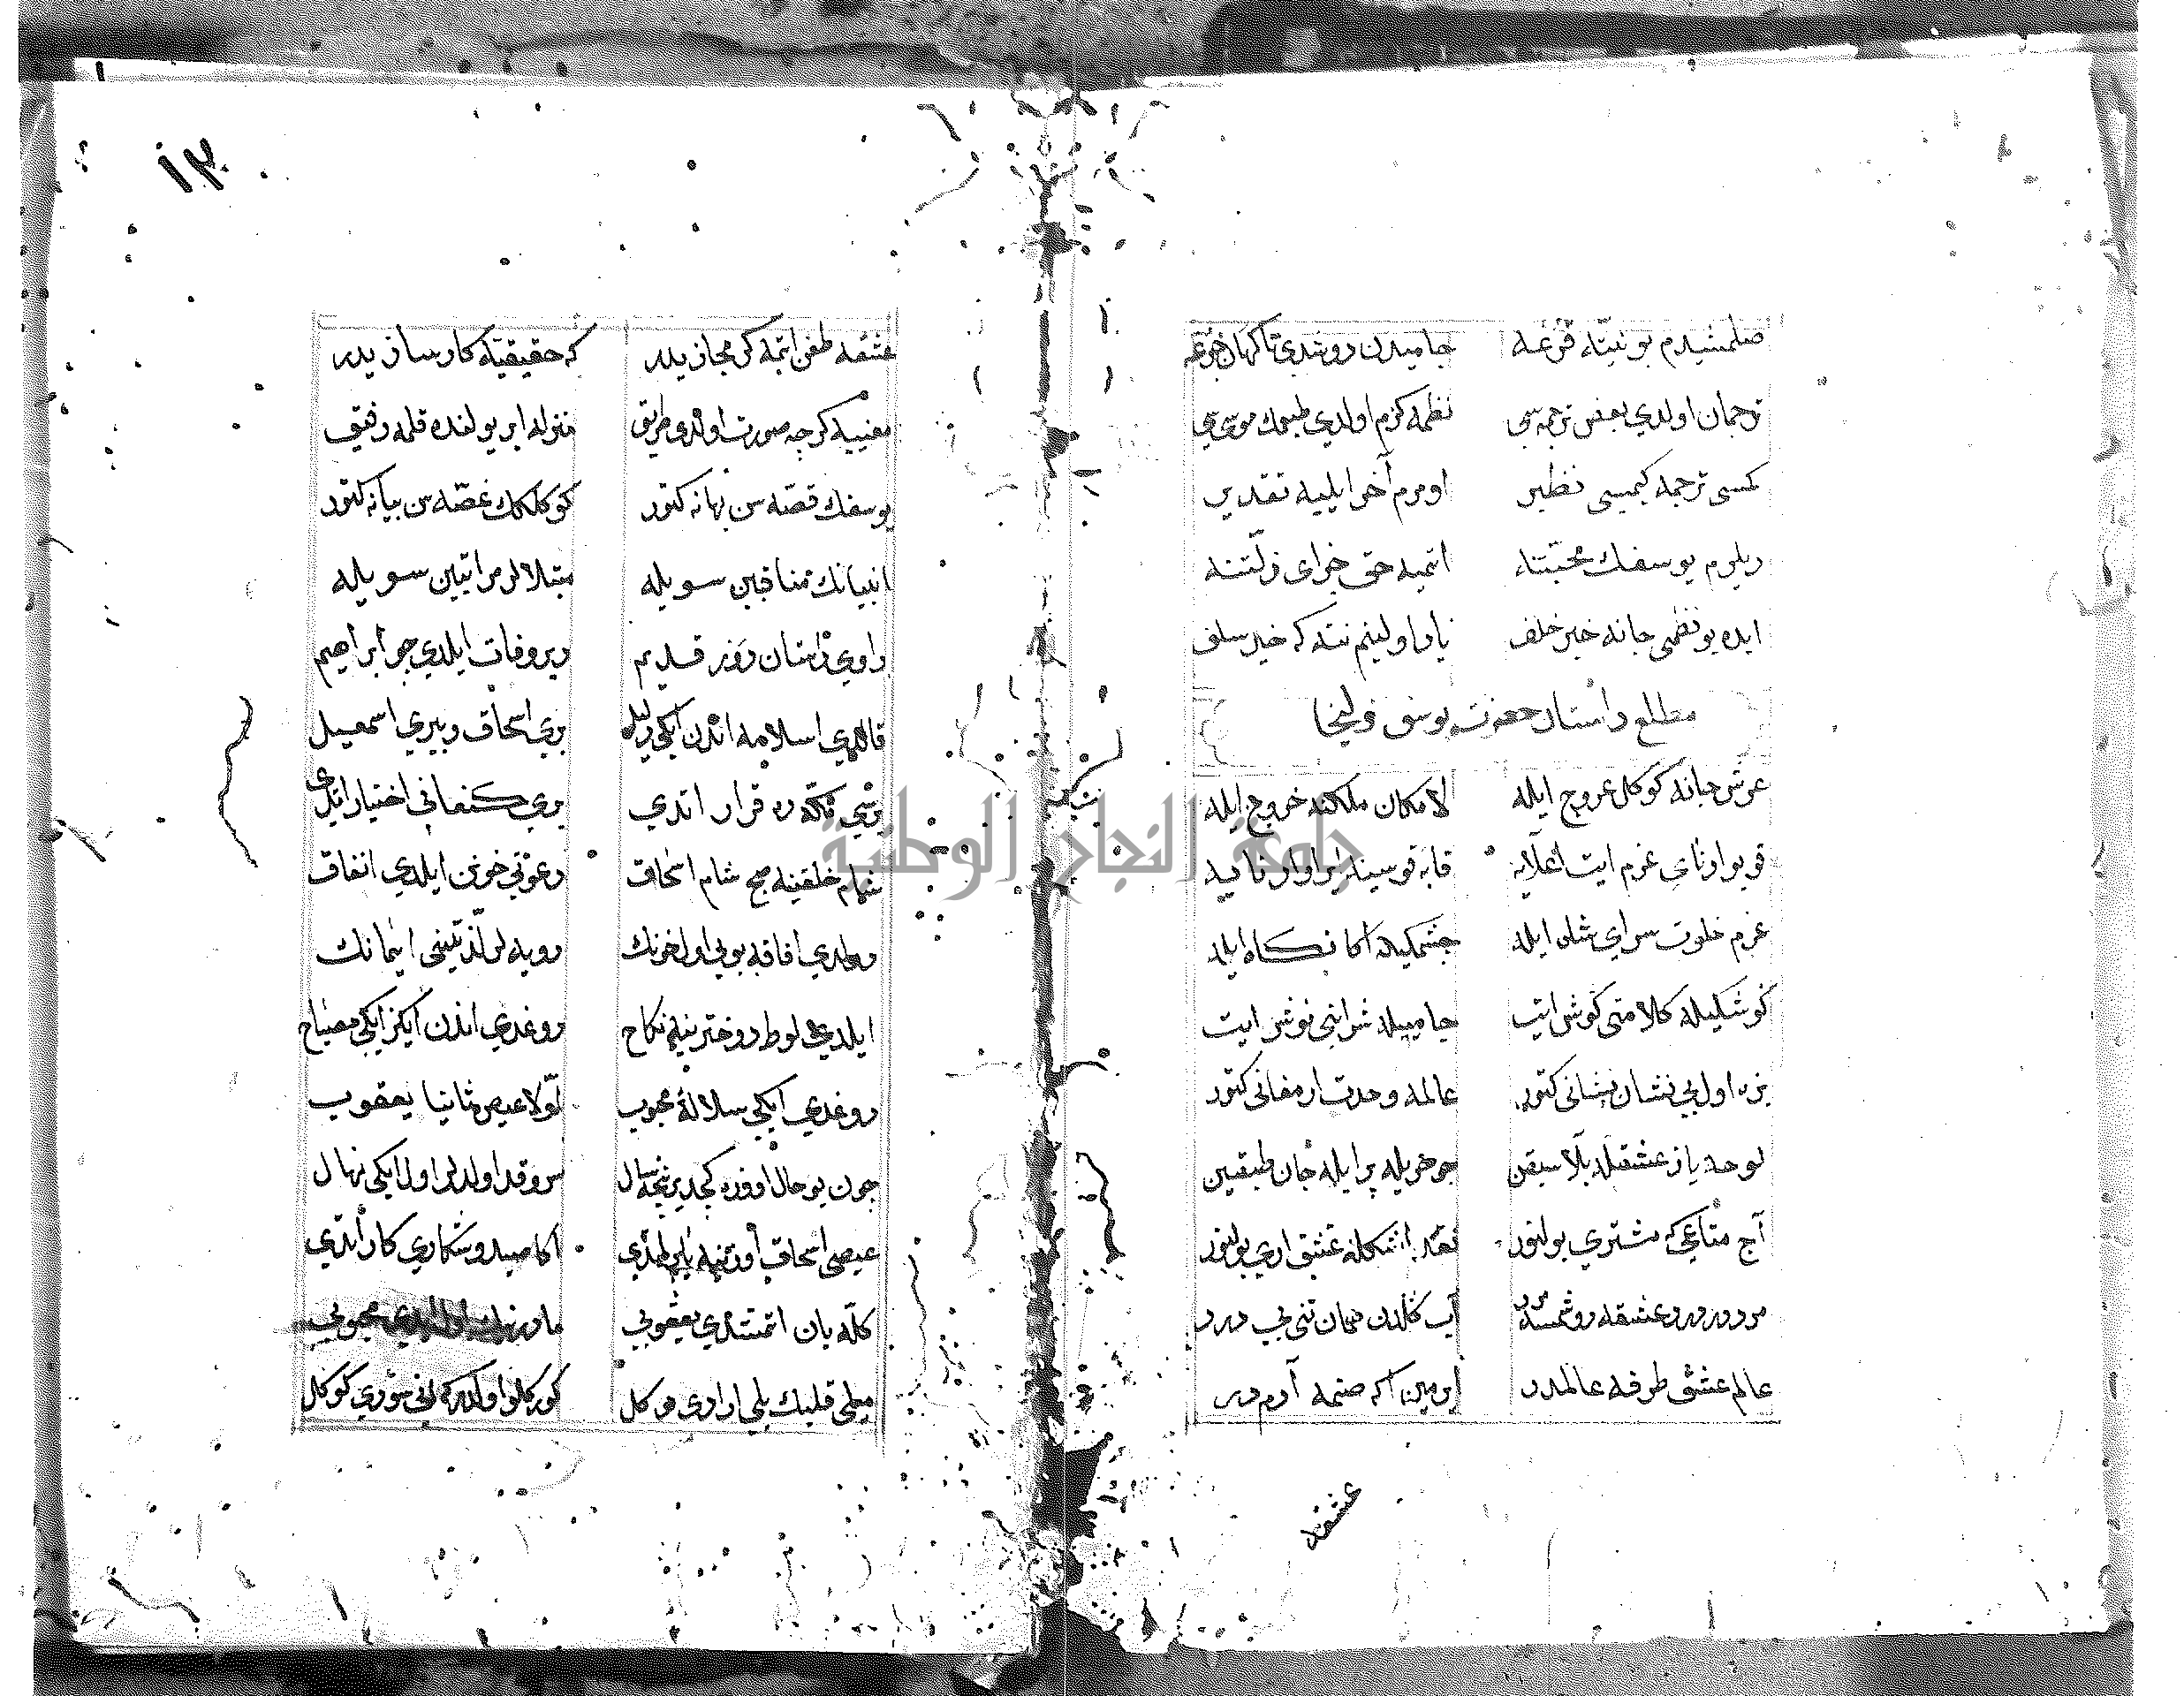 صلمشیدم بو نیّته قرعه جامیدن دوشدی تا کهان جرعه
ترجمان اولدی بعض ترجمه سی نظمه کرم اولدی طبعمك
کمسی ترجمه کیمیسی نظیر اومرم آخر ایلیه تقدیر
دیلرم یوسفك محبّتنه اتمیه حق جزای زلّتنه
ایده بو نظمی جانه خیر خلف یاد اولنیم نته که خیر سلف
مطلع داستان حضرت یوسف زلیخا
عرش جانه کوکل عروج ایله لامکان ملکنه خروج ایله
قو بو ادنای عزم ایت اعلایه قابه قوسینه ایر او ادنایه
عزم خلوت سرای شاه ایله چشمکیله اکا نکاه ایله
کوشکیله کلامنی کوش ایت جامیله شرابنی نوش ایت
بزه اول بی نشان نشانی کتور عالمه وحدت ارمغانی کتور
لوحه یاز عشقیله بلا سبقن جوهریله پر ایله جان طبقین
آج متاعی که مشتری بولنور نقد اشکله عشق اری بولنور
مرد در درد عشقه دوشمسه مرد آب کلدن همان تنی بی درد
عالم عشق طرفه عالمدر ایرمین اکه صنمه آدمدر
عشقه
١٣
عشقه طعن اتمه کر مجازیدر که حقیقته کارسازیدر
معنییه کرچه صورت اولدی طریق منزله ایر یولنده قلمه رفیق
یوسفك قصّه سن بهانه کتور کوکلکك غصّه سن بیانه کتور
انبیانك مناقبین سویله مبتلالر مراتبین سویله
راوی داستان روز قدیم دیر وفات ایلدی چو ابراهیم
قالدی اسلامه اندن ایکی دلیل بری اسحاق و بیری اسمعیل
بریسی مکّه ده قرار اتدی بری کنعانی اختیار اتدی
شام خلقینه صبح شام اسحاق دعوتی خوانن ایلدی انفاق
طولدی افاقه بویی اول خونك دویدیلر لذّتینی ایمانك
ایلدی لوط دوخترینی نکاح دوغدی اندن ایکز ایکی مصباح
دوغدی ایکی سلالهٔ محبوب اوّلا عیص ثانیا یعقوب
چون بو حال اوزره کچدی نیچه سال سرو قد اولدیلر اول ایکی نهال
عیصی اسحاق اکا صید و شکاری کار اتدی
کلّه بان اتمشدی یعقوبی مادرینك اول ایدی محبوبی
میلی قلبك بلی ارادی در کل کورکلو اولدر که انی سوردی کوکل